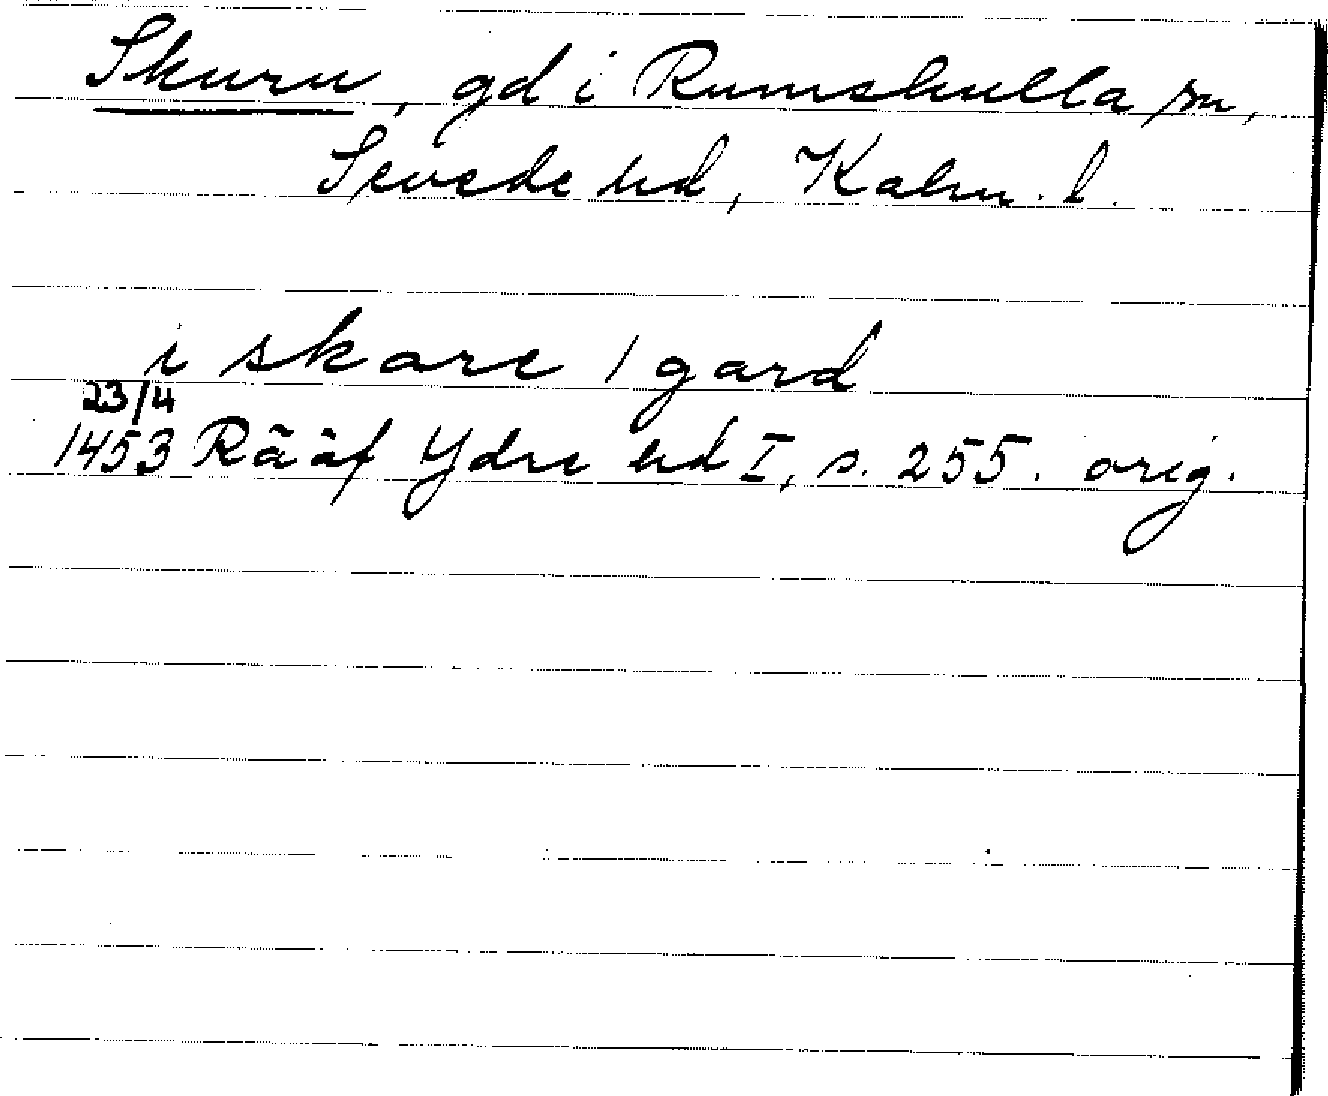 Skuru, gd i Rumskulla sn,
Sevede hd, Kalm. l.
i skare 1 gard
23/4
1453 Rääf Ydre hd I, s. 255. orig.